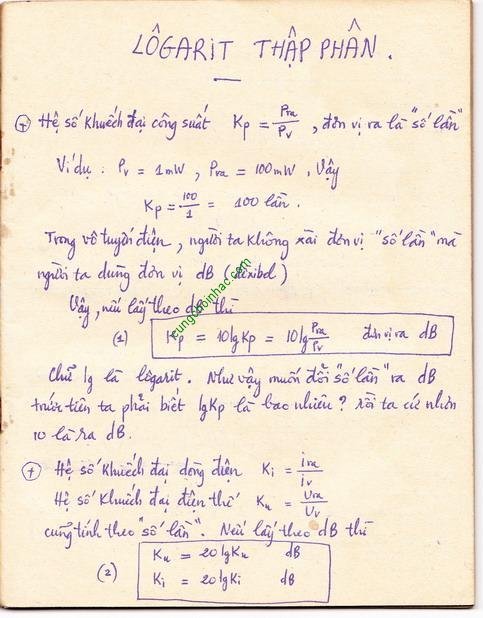 LÔGARIT THẬP PHÂN.
Hệ số khuếch đại công suất Kp = Pra/Pv, đơn vị ra là "số lần"
Ví dụ: Pv = 1mW, Pra = 100mW, Vậy
Kp = 100/1 = 100 lần.
Trong vô tuyến điện, người ta không xài đơn vị "số lần" mà
người ta dùng đơn vị dB (đêxibel)
Vậy, nếu lấy theo dB thì
(1) Kp = 10lgKp = 10lg Pra/Pv đơn vị ra dB
Chữ lg là lôgarit. Như vậy muốn đổi "số lần" ra dB
trước tiên ta phải biết lgKp là bao nhiêu? rồi ta cứ nhân
10 là ra dB.
Hệ số khuếch đại dòng điện Ki = ira/iv
Hệ số khuếch đại điện thế Ku = Ura/Uv
cũng tính theo "số lần". Nếu lấy theo dB thì
(2) Ku = 20lgKu dB
Ki = 20lgKi dB
cungchoinhac.com